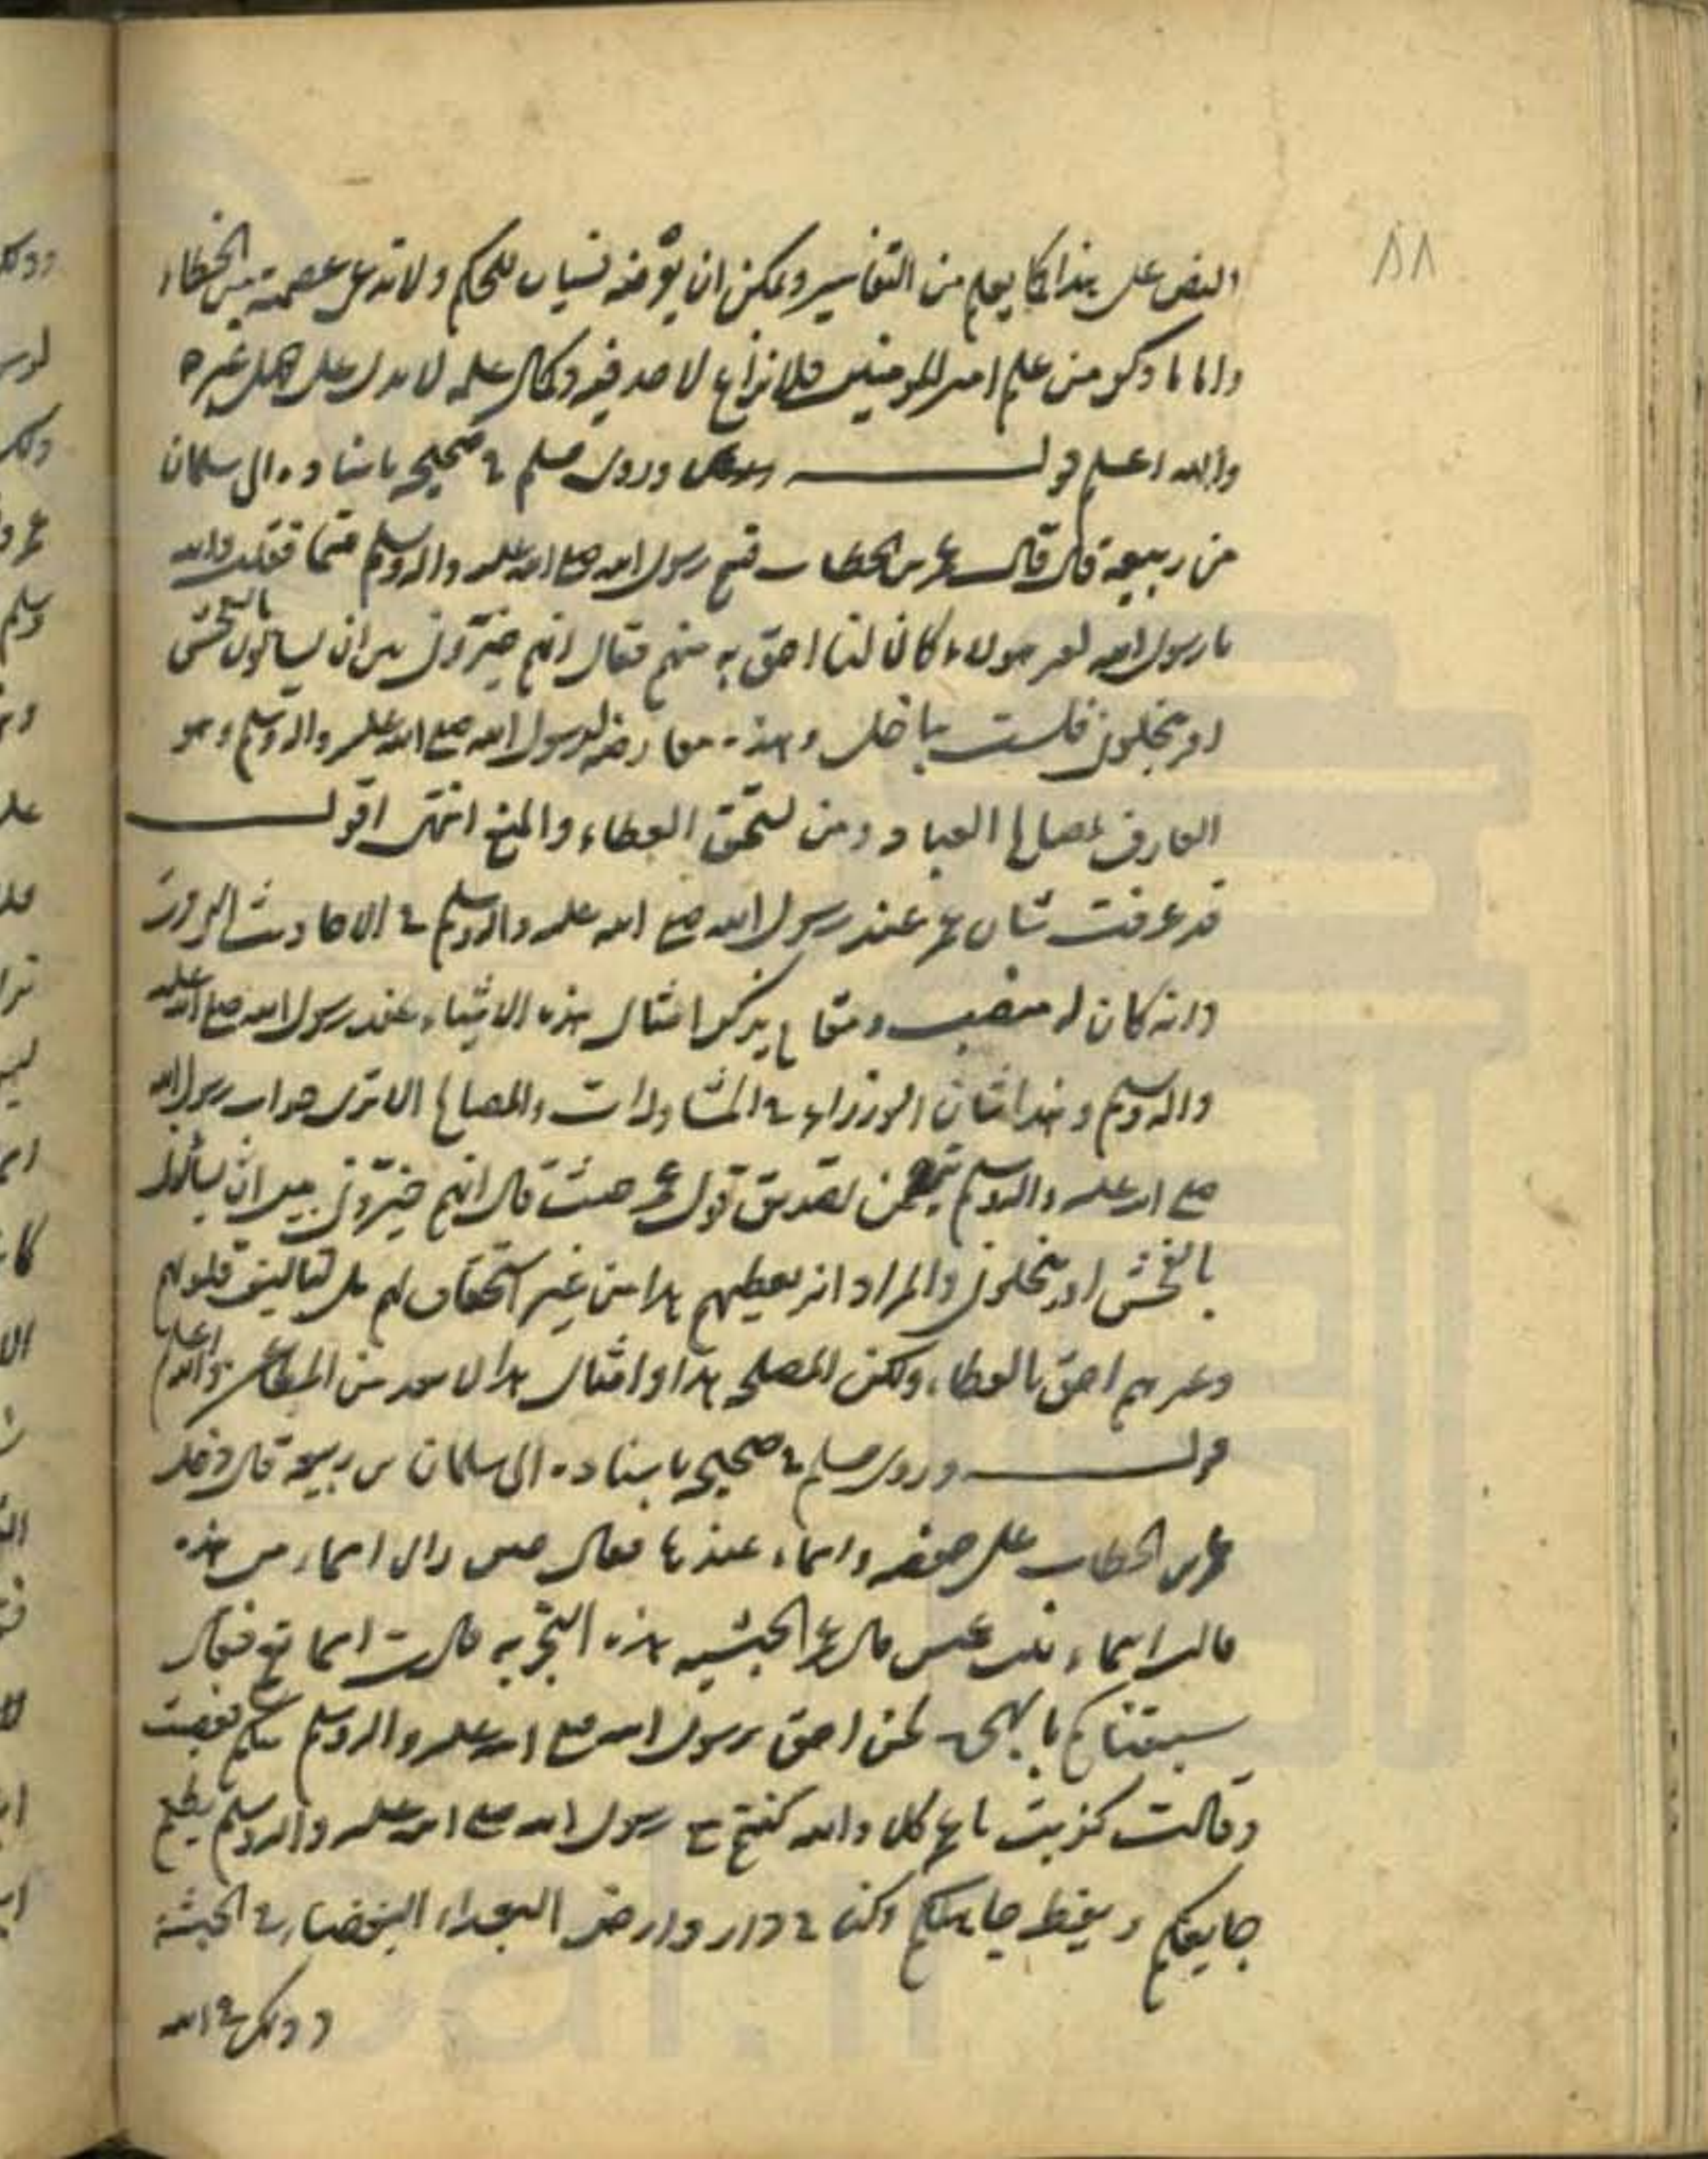 ٨٨
والنص على هذا كما يعلم من التفاسير ويمكن ان يعرضه نسيان للحكم ولا ندعى عصمته من الخطاء
واما ما ذكر من علم امير المومنين فلا نزاع لاحد فيه وكمال علمه لا يدل على جهل غيره
والله اعلم قوله وروى مسلم فى صحيحه باسناده الى سلمان
بن ربيعة قال قال عمر بن الخطاب قسم رسول الله صلع الله عليه واله وسلم قسما فقلت والله
يا رسول الله لغير هولاء كان لنا احق به منهم فقال انهم خيرونى بين ان يسالونى بالفحش
او يبخلونى فلست بباخل وهذه معارضة لرسول الله صلع الله عليه واله وسلم وهو
العارف لمصالح العباد ومن يستحق العطاء والمنع انتهى اقول
قد عرفت شان عمر عند رسول الله صلع الله عليه واله وسلم فى الاحاديث
وانه كان له منصب ومقام يذكر امثال هذه الاشياء عند رسول الله صلع الله عليه
واله وسلم وهذا شان الوزراء فى المشاورات والمصالح الا ترى جواب رسول الله
صلع الله عليه واله وسلم تصديق قول عمر حيث قال انهم خيرونى بين ان يسالونى
بالفحش او يبخلونى والمراد انه يعطيهم هذا من غير استحقاق لهم بل لتاليف قلوبهم
وغيرهم احق بالعطاء ولكن المصلحة هذا وامثال هذا لا يعد من المطاعن والله اعلم
قوله وروى مسلم فى صحيحه باسناده الى سلمان بن ربيعة قال دخل
عمر بن الخطاب على حفصه واسماء عندها فقال حين راى اسماء من هذه
قالت اسماء بنت عميس قال عمر الحبشيه هذه البحريه قالت اسما نعم فقال
سبقناكم بالهجرة نحن احق برسول الله صلع الله عليه واله وسلم منكم فغضبت
وقالت كذبت يا عمر كلا والله كنتم مع رسول الله صلع الله عليه واله وسلم يطعم
جايعكم ويعظ جاهلكم وكنا فى دار وارض البعداء البغضاء فى الحبشة
وذلك فى الله